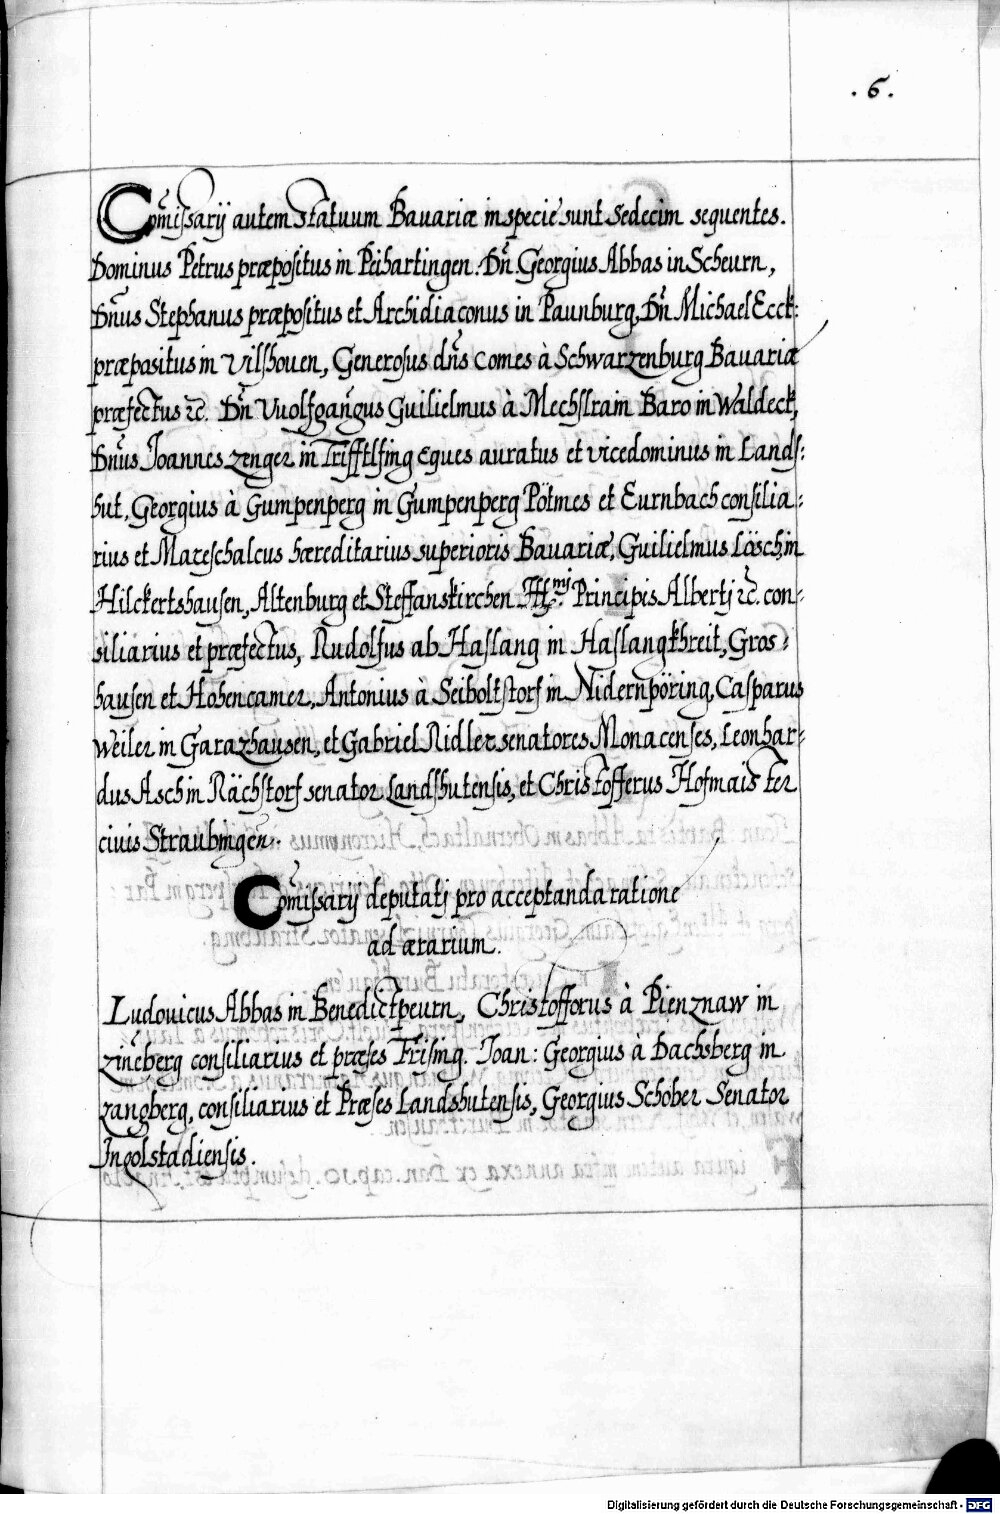 . 6 .
Com̃issarij autem statuum Bauariæ in specie sunt sedecim sequentes.
Dominus Petrus præpositus in Peihartingen. Dñ Georgius Abbas in Scheurn,
Dñus Stephanus præpositus et Archidiaconus in Paunburg, Dñ Michael Ecck:
præpositus in Vilshouen, Generosus dñs Comes à Schwarzenburg Bauariæ
præfectus ꝛc. Dñ Vuolfgangus Guilielmus à Mechslrain Baro in Waldeck,
Dñus Joannes Zenger in Trifftlfing Eques auratus et Vicedominus in Lands:
hut, Georgius à Gumpenperg in Gumpenperg Pötmes et Eurnbach consilia:
rius et Mareschalcus hæreditarius superioris Bauariæ, Guilielmus Lösch, in
Hilckertshausen, Altenburg et Steffanskirchen Principis Albertj ꝛc. con:
siliarius et præfectus, Rudolfus ab Haslang in Haslangkhreit, Gros:
hausen et Hohencamer, Antonius à Seiboltstorf in Nidernpöring, Casparus
Weiler in Garazhausen, et Gabriel Ridler senatores Monacenses, Leonhar:
dus Asch in Rächstorf senator Landshutensis, et Christofferus Hofmaister
ciuis Straubingen̄.
Com̃issarij deputatj pro acceptanda ratione
ad ærarium.
Ludouicus Abbas in Benedictpeurn, Christofforus à Pienznaw in
Zineberg consiliarius et præses Frising. Joan: Georgius à Dachsberg in
Zangberg, consiliarius et Præses Landshutensis, Georgius Schober Senator
Ingolstadiensis.
Digitalisierung gefördert durch die Deutsche Forschungsgemeinschaft - DFG